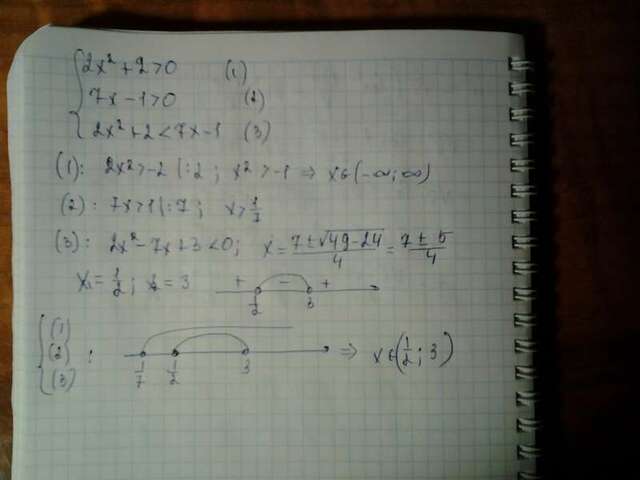 {2x²+2>0 (1)
7x-1>0 (2)
2x²+2<7x-1 (3)
(1): 2x²>-2 |:2 ; x²>-1 ⇒ x∈(-∞;∞)
(2): 7x>1 |:7 ; x>1/7
(3): 2x²-7x+3<0; x = (7±√49-24)/4 = (7±5)/4
x₁=1/2; x₂=3 + - +
1/2 3
{(1)
(2) : ⇒ x∈(1/2; 3)
(3)
1/7 1/2 3